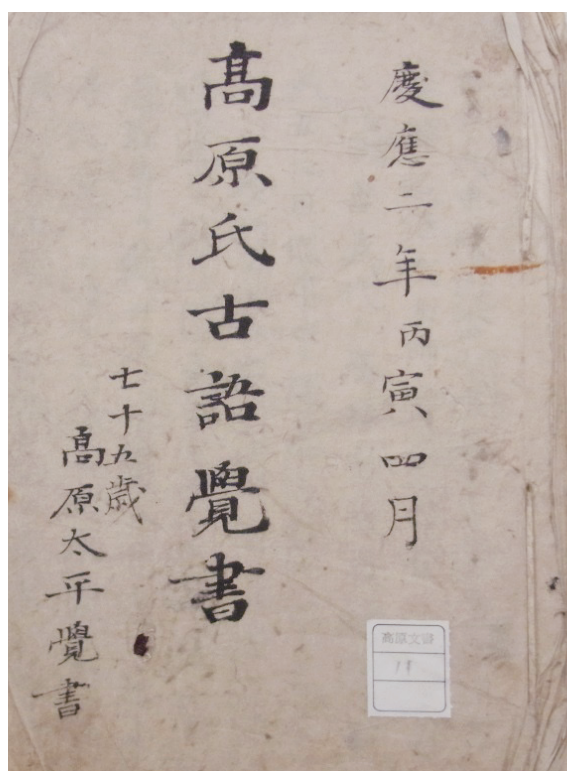 慶應二年丙寅四月
髙原氏古語覺書
七十五歳
髙原太平覺書
高原文書